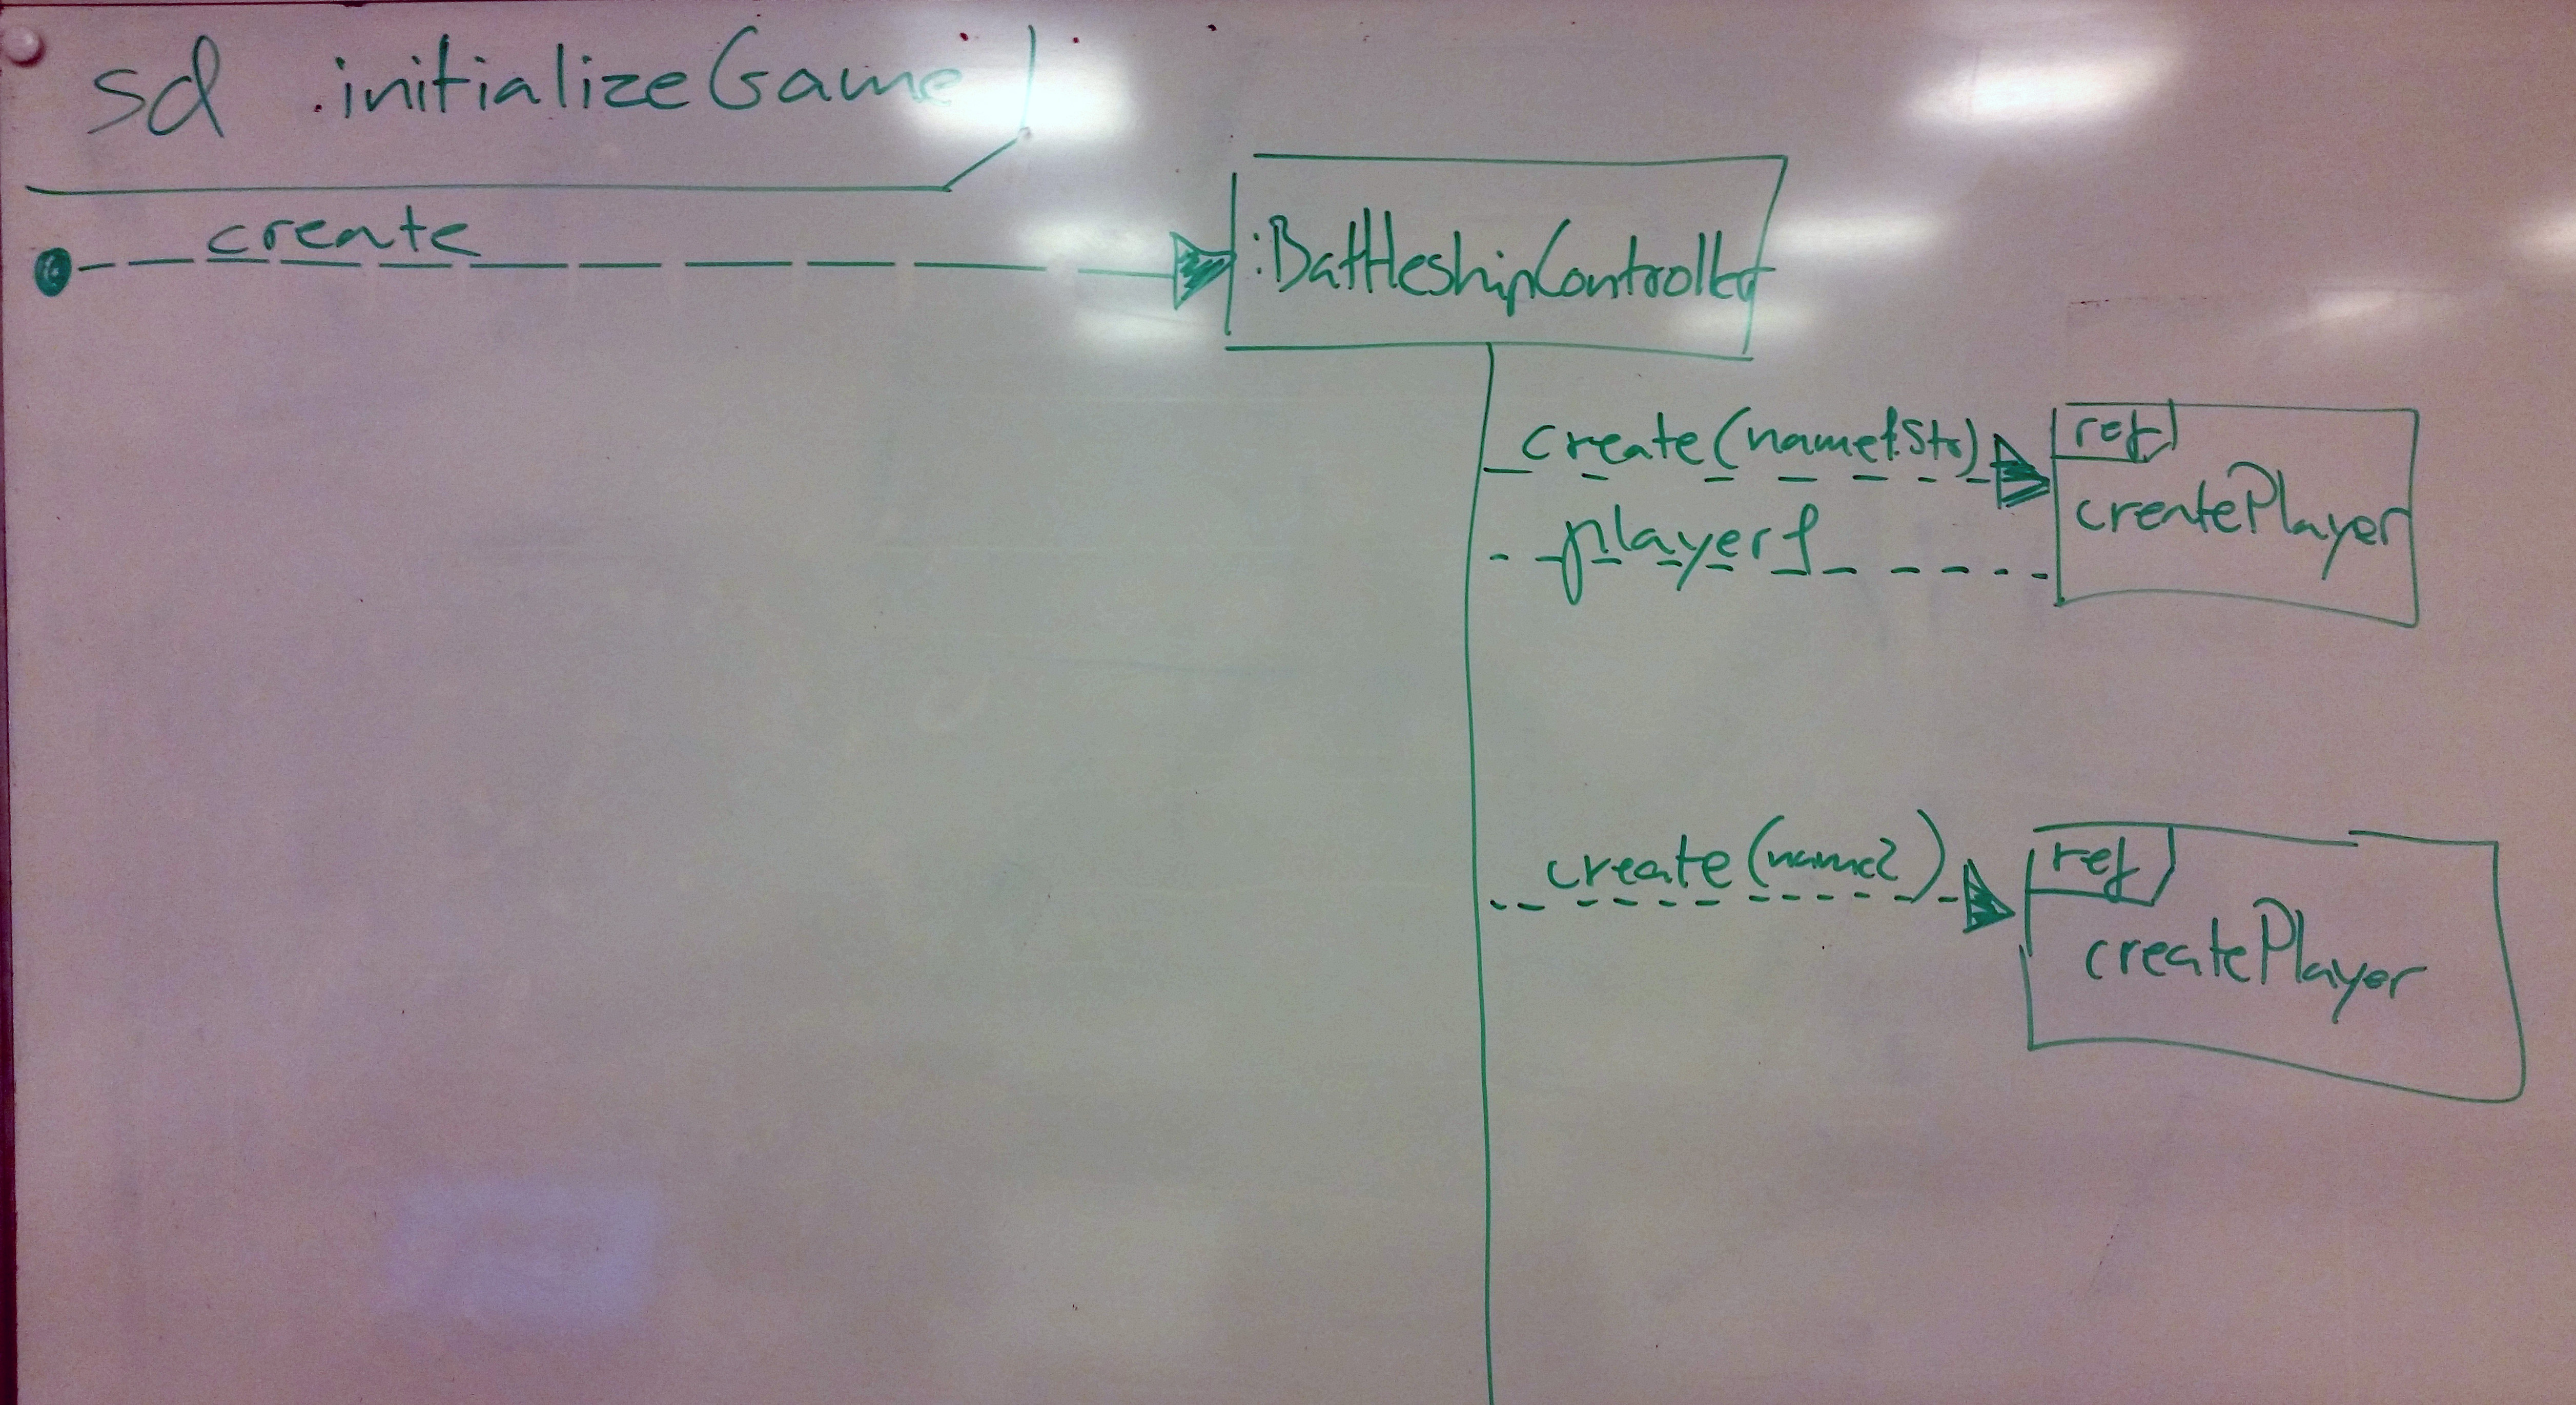 sd initializeGame
create
:BattleshipController
create(name1:Str)
ref
createPlayer
player1
create(name2)
ref
createPlayer